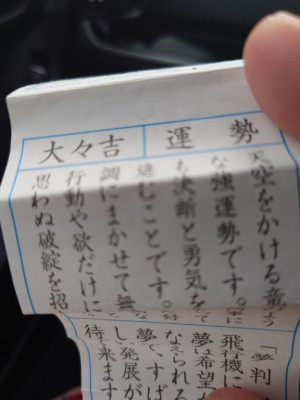 大々吉
運勢
天空をかける竜
な強運勢です。
も決断と勇気を
進むことです。
調にまかせて無
行動や欲だけに
思わぬ破綻を招
「夢判
飛行機に
夢は希望
なえられる
夢で、すば
し、発展が
来ます